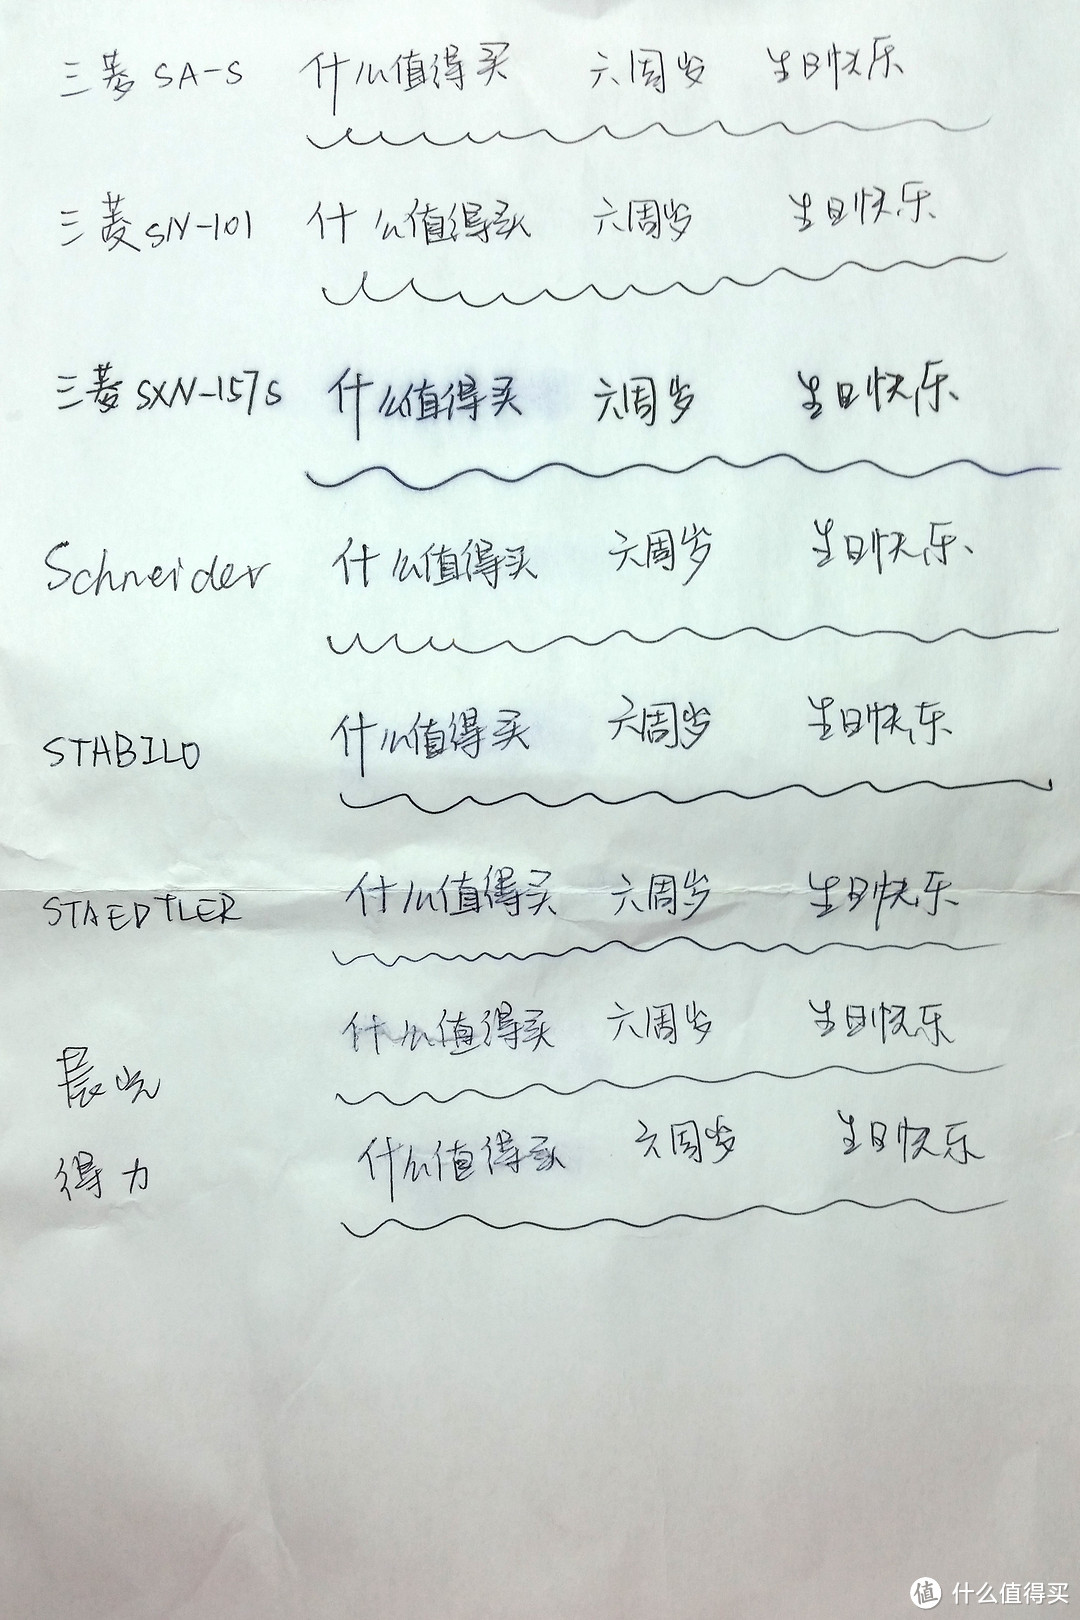 三菱 SA-S 什么值得买 六周岁 生日快乐
三菱 SN-101 什么值得买 六周岁 生日快乐
三菱 SXN-157S 什么值得买 六周岁 生日快乐
Schneider 什么值得买 六周岁 生日快乐
STABILO 什么值得买 六周岁 生日快乐
STAEDTLER 什么值得买 六周岁 生日快乐
晨光 什么值得买 六周岁 生日快乐
得力 什么值得买 六周岁 生日快乐
值 什么值得买